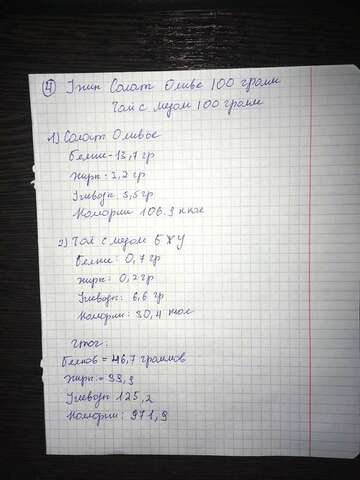 ④ Ужин Салат Оливье 100 грамм
Чай с медом 100 грамм
1) Салат Оливье
Белки - 13,7 гр
Жиры: 3,2 гр
Углеводы: 5,5 гр
Калории 106.9 ккал
2) Чай с медом БЖУ
Белки: 0,7 гр
Жиры: 0,2 гр
Углеводы: 6,6 гр
Калории: 30,4 ккал
Итог:
Белков = 46,7 граммов
Жиры = 33,3
Углеводы 125,2
Калории: 971,9